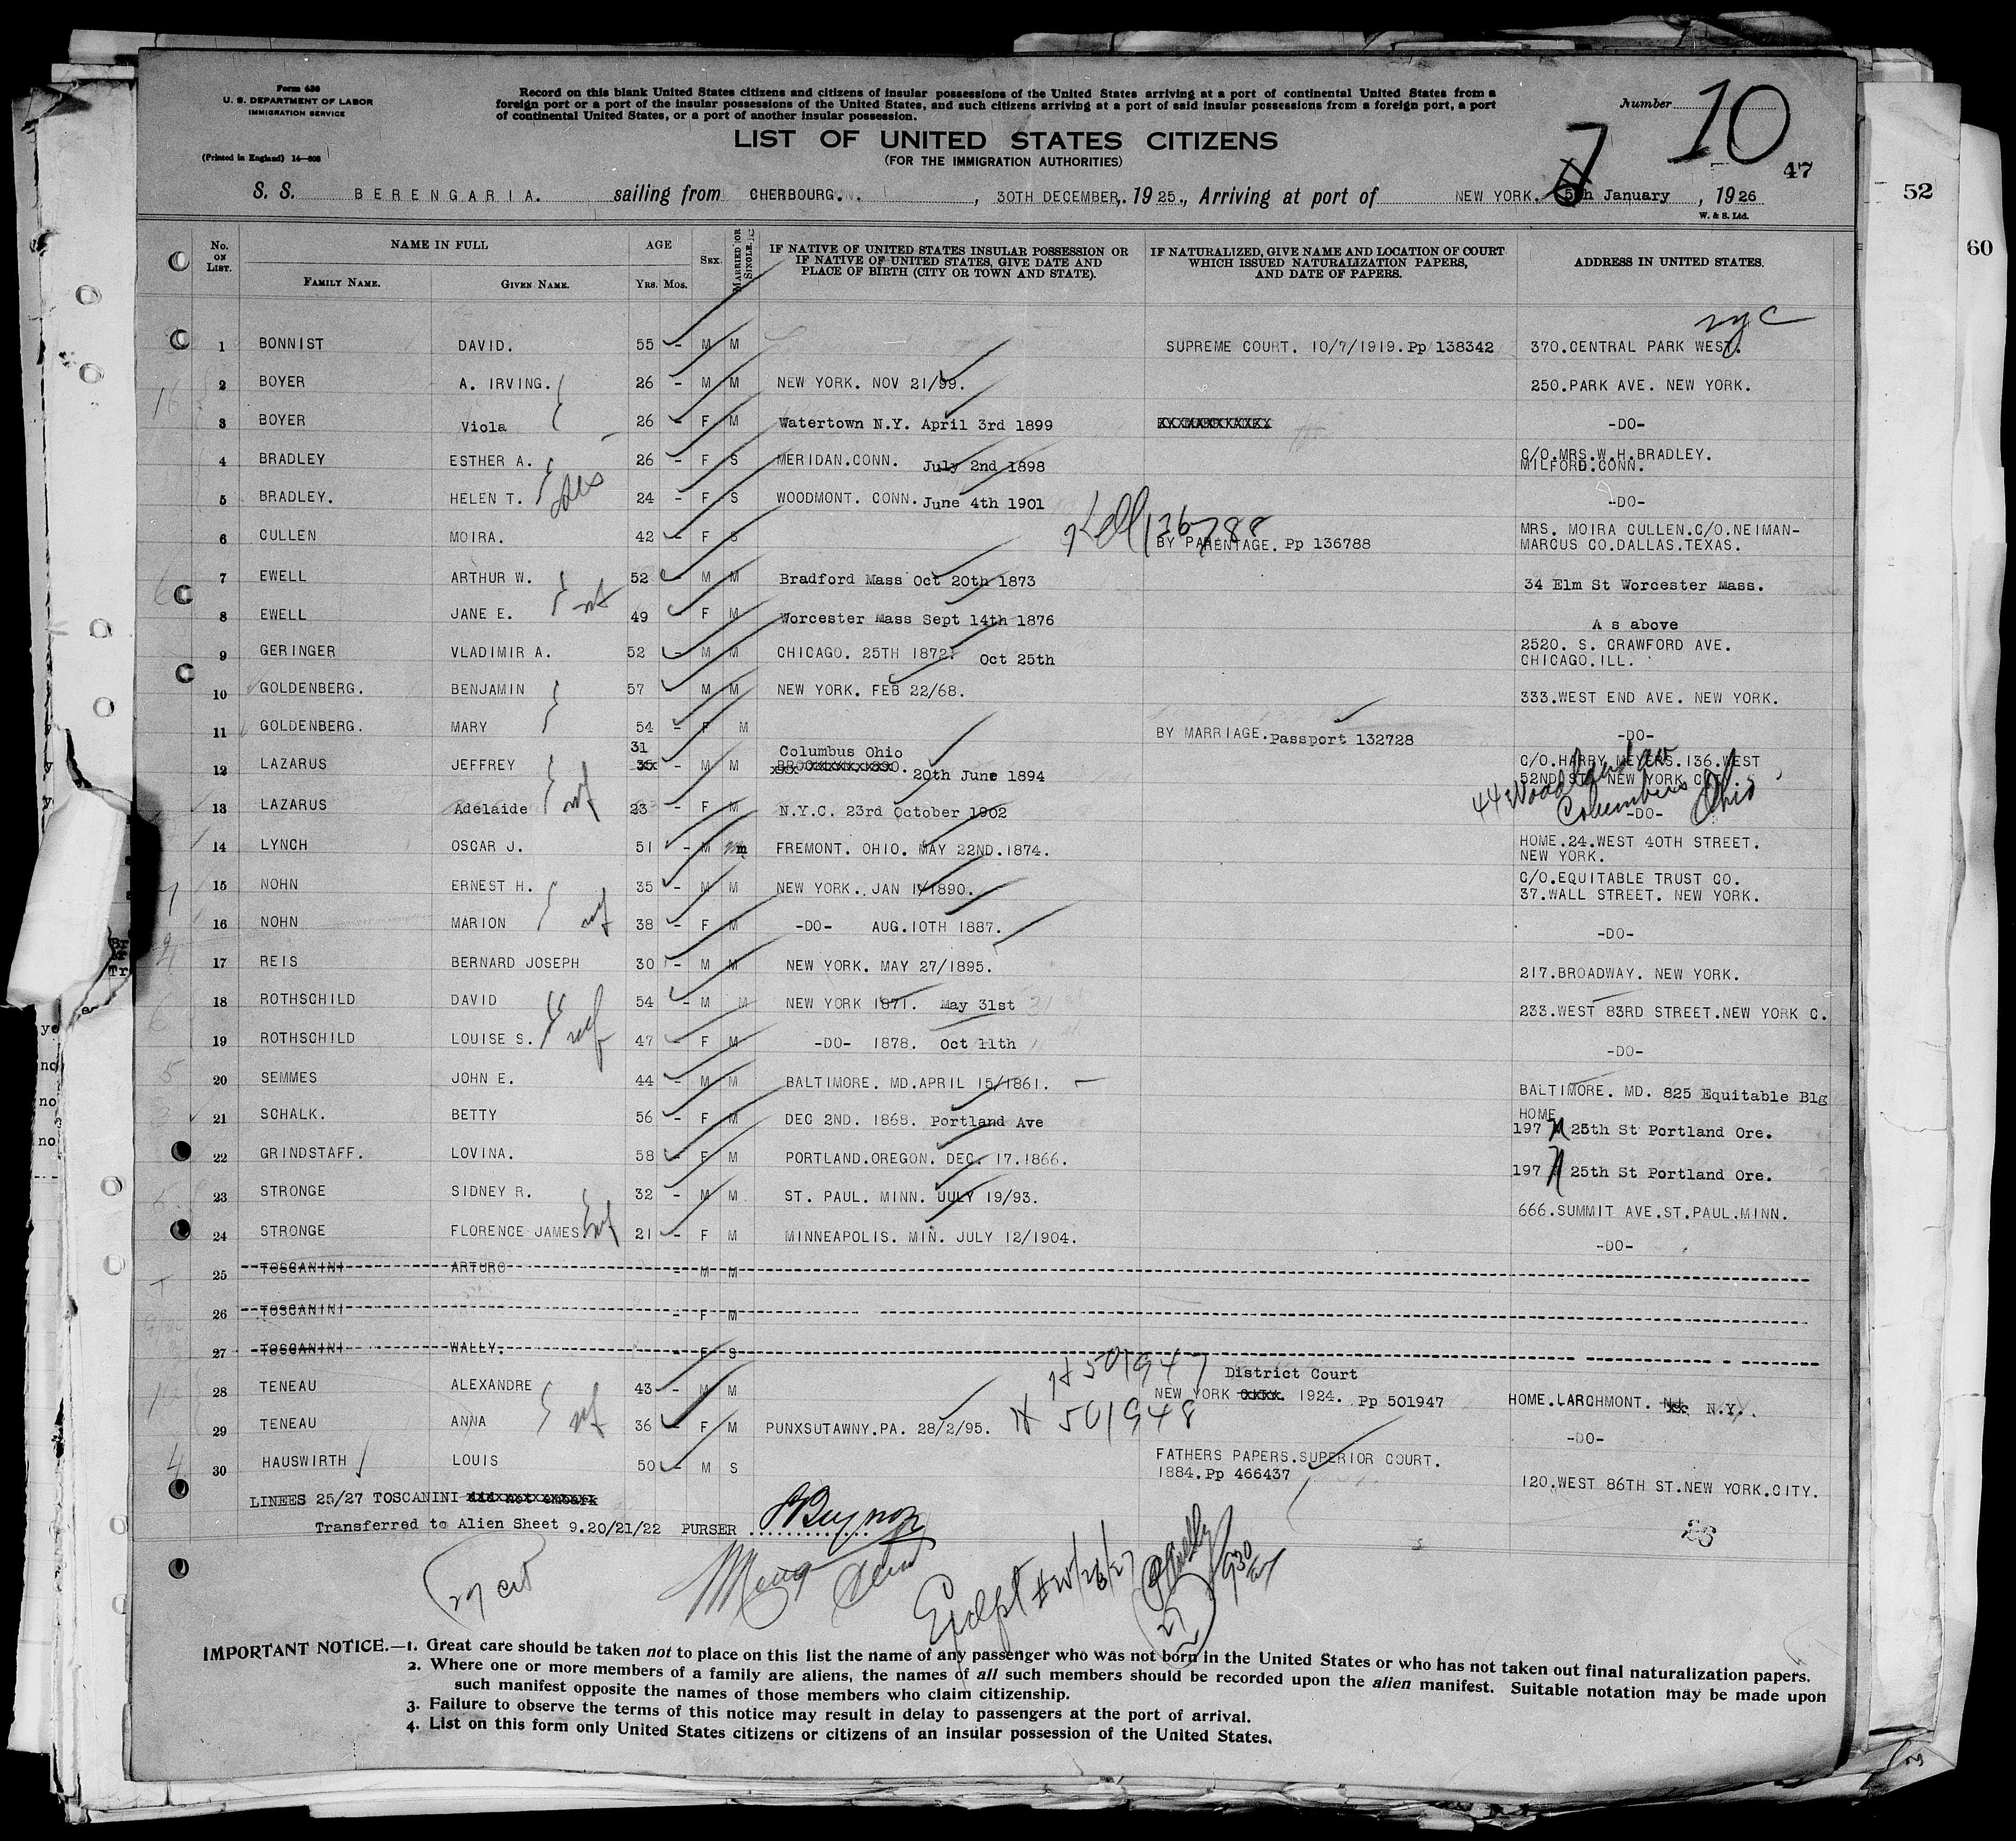 Form 630
U. S. DEPARTMENT OF LABOR
IMMIGRATION SERVICE
(Printed in England) 14—808
Record on this blank United States citizens and citizens of insular possessions of the United States arriving at a port of continental United States from a
foreign port or a port of the insular possessions of the United States, and such citizens arriving at a port of said insular possessions from a foreign port, a port
of continental United States, or a port of another insular possession.
Number 10
LIST OF UNITED STATES CITIZENS
(FOR THE IMMIGRATION AUTHORITIES)
47
52
60
S. S. BERENGARIA. sailing from CHERBOURG. , 30TH DECEMBER, 1925., Arriving at port of NEW YORK. 7 5th January , 1926
W. & S. Ltd.
No. ON LIST. NAME IN FULL AGE SEX. MARRIED OR SINGLE. IF NATIVE OF UNITED STATES INSULAR POSSESSION OR IF NATIVE OF UNITED STATES, GIVE DATE AND PLACE OF BIRTH (CITY OR TOWN AND STATE). IF NATURALIZED, GIVE NAME AND LOCATION OF COURT WHICH ISSUED NATURALIZATION PAPERS, AND DATE OF PAPERS. ADDRESS IN UNITED STATES.
FAMILY NAME. GIVEN NAME. YRS. MOS.
nyc
1 BONNIST DAVID. 55 - M M SUPREME COURT. 10/7/1919. Pp 138342 370.CENTRAL PARK WEST.
2 BOYER A. IRVING. 26 - M M NEW YORK. NOV 21/99. 250.PARK AVE. NEW YORK.
3 BOYER Viola 26 - F M Watertown N.Y. April 3rd 1899 -DO-
4 BRADLEY ESTHER A. 26 - F S MERIDAN.CONN. July 2nd 1898 C/O.MRS.W.H.BRADLEY.
MILFORD.CONN.
5 BRADLEY. HELEN T. 24 - F S WOODMONT. CONN. June 4th 1901 -DO-
136788
6 CULLEN MOIRA. 42 - F S BY PARENTAGE. Pp 136788 MRS. MOIRA CULLEN.C/O.NEIMAN-
MARCUS CO.DALLAS.TEXAS.
7 EWELL ARTHUR W. 52 - M M Bradford Mass Oct 20th 1873 34 Elm St Worcester Mass.
8 EWELL JANE E. 49 - F M Worcester Mass Sept 14th 1876 A s above
9 GERINGER VLADIMIR A. 52 - M M CHICAGO. 25TH 1872. Oct 25th 2520. S. CRAWFORD AVE.
CHICAGO.ILL.
10 GOLDENBERG. BENJAMIN 57 M M NEW YORK. FEB 22/68. 333.WEST END AVE. NEW YORK.
11 GOLDENBERG. MARY 54 - F M BY MARRIAGE. Passport 132728 -DO-
31 Columbus Ohio
12 LAZARUS JEFFREY 35 - M M 20th June 1894 C/O.HARRY MEYERS.136.WEST
52ND ST. NEW YORK CITY.
44 Woodland Av
Columbus Ohio
13 LAZARUS Adelaide 23 - F M N.Y.C. 23rd October 1902 -DO-
14 LYNCH OSCAR J. 51 - M m FREMONT. OHIO. MAY 22ND.1874. HOME.24.WEST 40TH STREET.
NEW YORK.
15 NOHN ERNEST H. 35 - M M NEW YORK. JAN 1/1890. C/O.EQUITABLE TRUST CO.
37.WALL STREET. NEW YORK.
16 NOHN MARION 38 - F M -DO- AUG.10TH 1887. -DO-
17 REIS BERNARD JOSEPH 30 - M M NEW YORK. MAY 27/1895. 217.BROADWAY. NEW YORK.
18 ROTHSCHILD DAVID 54 - M M NEW YORK 1871. May 31st 233.WEST 83RD STREET.NEW YORK C.
19 ROTHSCHILD LOUISE S. 47 - F M -DO- 1878. Oct 11th -DO-
20 SEMMES JOHN E. 44 - M M BALTIMORE. MD.APRIL 15/1861. BALTIMORE. MD. 825 Equitable Blg
21 SCHALK. BETTY 56 - F M DEC 2ND. 1868. Portland Ave HOME
197 N 25th St Portland Ore.
22 GRINDSTAFF. LOVINA. 58 - F M PORTLAND.OREGON. DEC. 17.1866. 197 N 25th St Portland Ore.
23 STRONGE SIDNEY R. 32 - M M ST. PAUL. MINN. UULY 19/93. 666.SUMMIT AVE.ST.PAUL.MINN.
24 STRONGE FLORENCE JAMES 21 - F M MINNEAPOLIS. MIN. JULY 12/1904. -DO-
25 TOSCANINI ARTURO - M M
26 TOSCANINI - F M
27 TOSCANINI WALLY. - F S
# 501947 District Court
28 TENEAU ALEXANDRE 43 - M M NEW YORK 1924. Pp 501947 HOME.LARCHMONT. N.Y.
# 501948
29 TENEAU ANNA 36 - F M PUNXSUTAWNY.PA. 28/2/95. -DO-
30 HAUSWIRTH LOUIS 50 - M S FATHERS PAPERS.SUPERIOR COURT.
1884. Pp 466437 120.WEST 86TH ST.NEW YORK.CITY.
LINEES 25/27 TOSCANINI did not embark
Transferred to Alien Sheet 9.20/21/22 PURSER
Except # 25/26/27
27
IMPORTANT NOTICE.—1. Great care should be taken not to place on this list the name of any passenger who was not born in the United States or who has not taken out final naturalization papers.
2. Where one or more members of a family are aliens, the names of all such members should be recorded upon the alien manifest. Suitable notation may be made upon
such manifest opposite the names of those members who claim citizenship.
3. Failure to observe the terms of this notice may result in delay to passengers at the port of arrival.
4. List on this form only United States citizens or citizens of an insular possession of the United States.